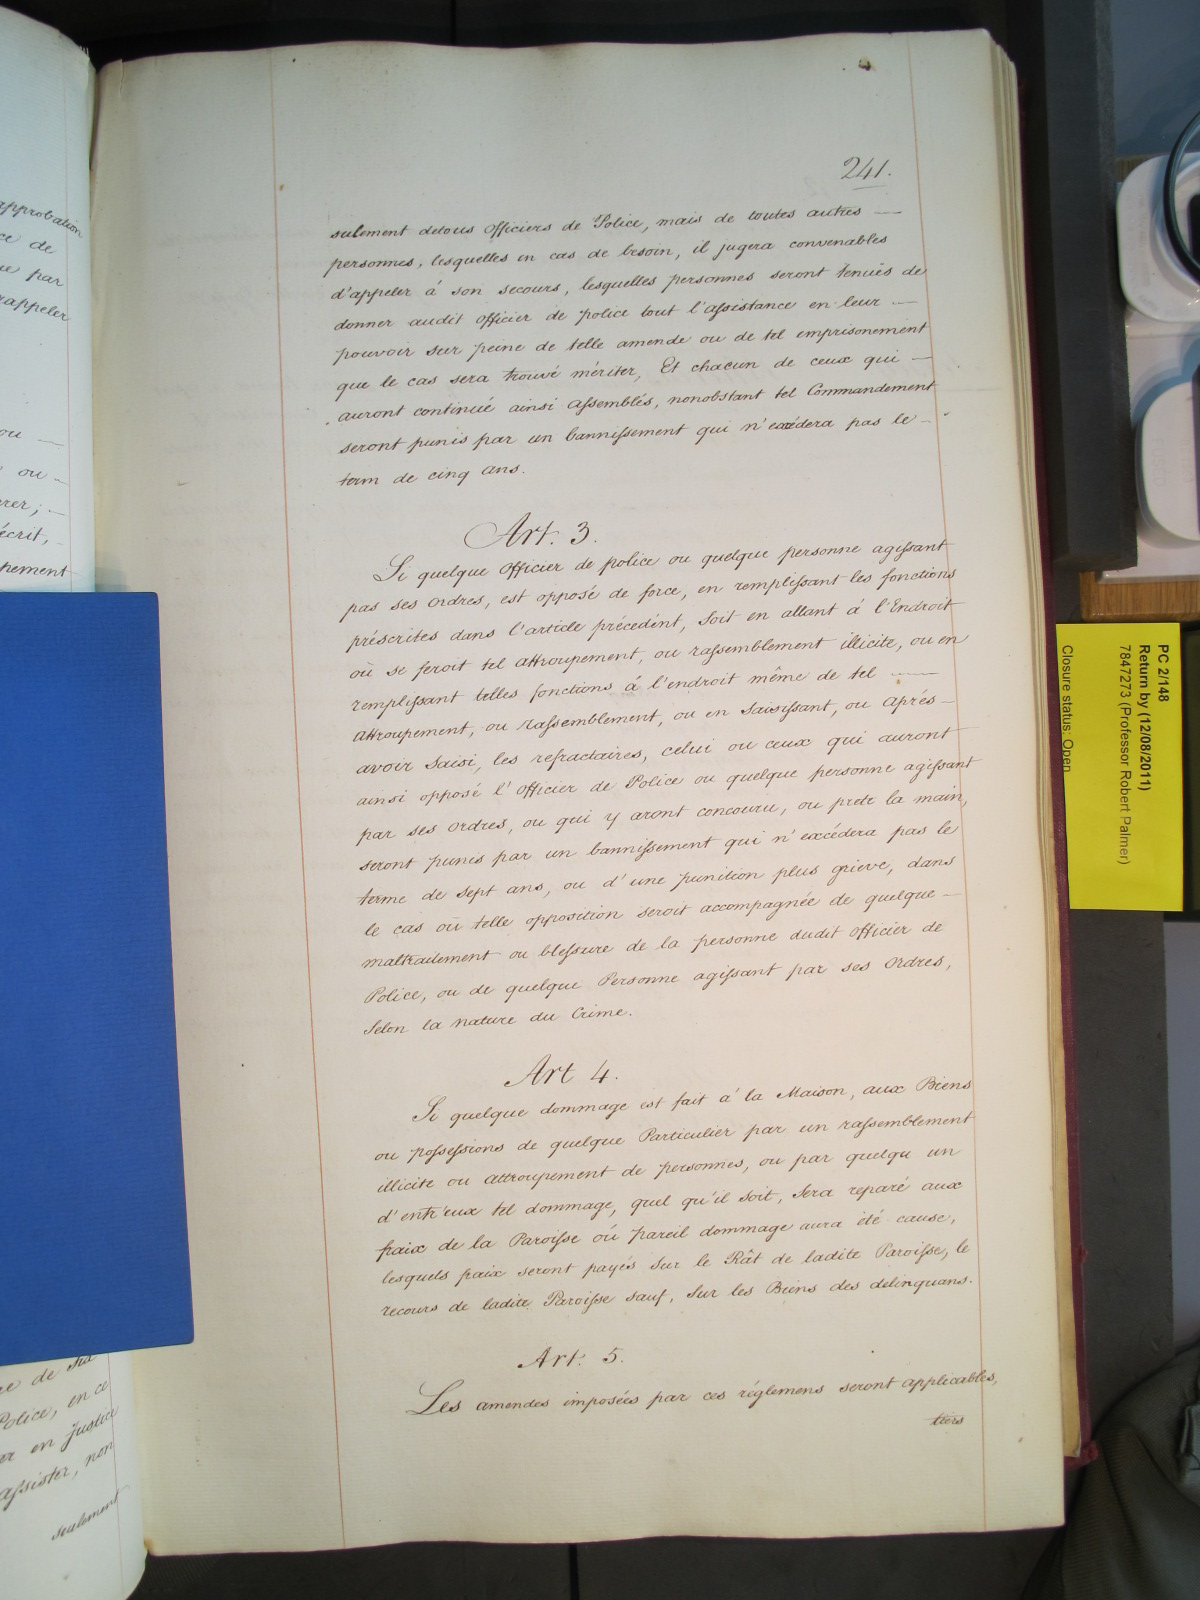 approbation
ce de
ue par
rappeler
ou —
ou —
rer ; —
écrit,
pement
Police, en ce
er en justice
assister, non
seulement
241.
sulement detous Officiers de Police, mais de toutes autres —
personnes, lesquelles en cas de besoin, il jugera convenables
d'appeler á son secours, lesquelles personnes seront tenués de
donner audit Officier de police tout l'assistance en leur —
pouvoir sur peine de telle amende ou de tel emprisonement
que le cas sera trouvé mériter, Et chacun de ceux qui —
auront continué ainsi Assemblés, nonobstant tel Commandement
seront punis par un bannissement qui n'excédera pas le —
term de cinq ans.
Art. 3.
Si quelque Officier de police ou quelque personne agissant
pas ses Ordres, est opposé de force, en remplissant les fonctions
préscrites dans l'article précédent, Soit en allant á l'Endroit
où se feroit tel Attroupement, ou rassemblement illicite, ou en
remplissant telles fonctions á l'endroit même de tel —
Attroupement, ou rassemblement, ou en Saisissant, ou Aprés —
avoir Saisi, les refractaires, celui ou ceux qui auront
ainsi opposé l'Officier de Police ou quelque personne agissant
par ses Ordres, ou qui y aront concouru, ou prete la main,
seront punis par un bannissement qui n'excédera pas le
terme de Sept ans, ou d'une punition plus grieve, dans
le cas où telle opposition seroit accompagnée de quelque —
maltraitement ou blessure de la personne dudit Officier de
Police, ou de quelque Personne agissant par ses Ordres,
Selon la nature du Crime.
Art 4.
Si quelque dommage est fait á la Maison, aux Biens
ou possessions de quelque Particulier par un rassemblement
illicite ou attroupement de personnes, ou par quelqu un
d'entr'eux tel dommage, quel qu'il soit, Sera reparé aux
fraix de la Paroisse óu pareil dommage aura été cause,
lesquels fraix seront payés Sur le Rât de ladite Paroisse, le
recours de ladite Paroisse sauf, Sur les Biens des delinquans.
Art. 5.
Les amendes imposées par ces réglemens seront applicables,
tiers
PC 2/148
Return by (12/08/2011)
7847273 (Professor Robert Palmer)
Closure status: Open